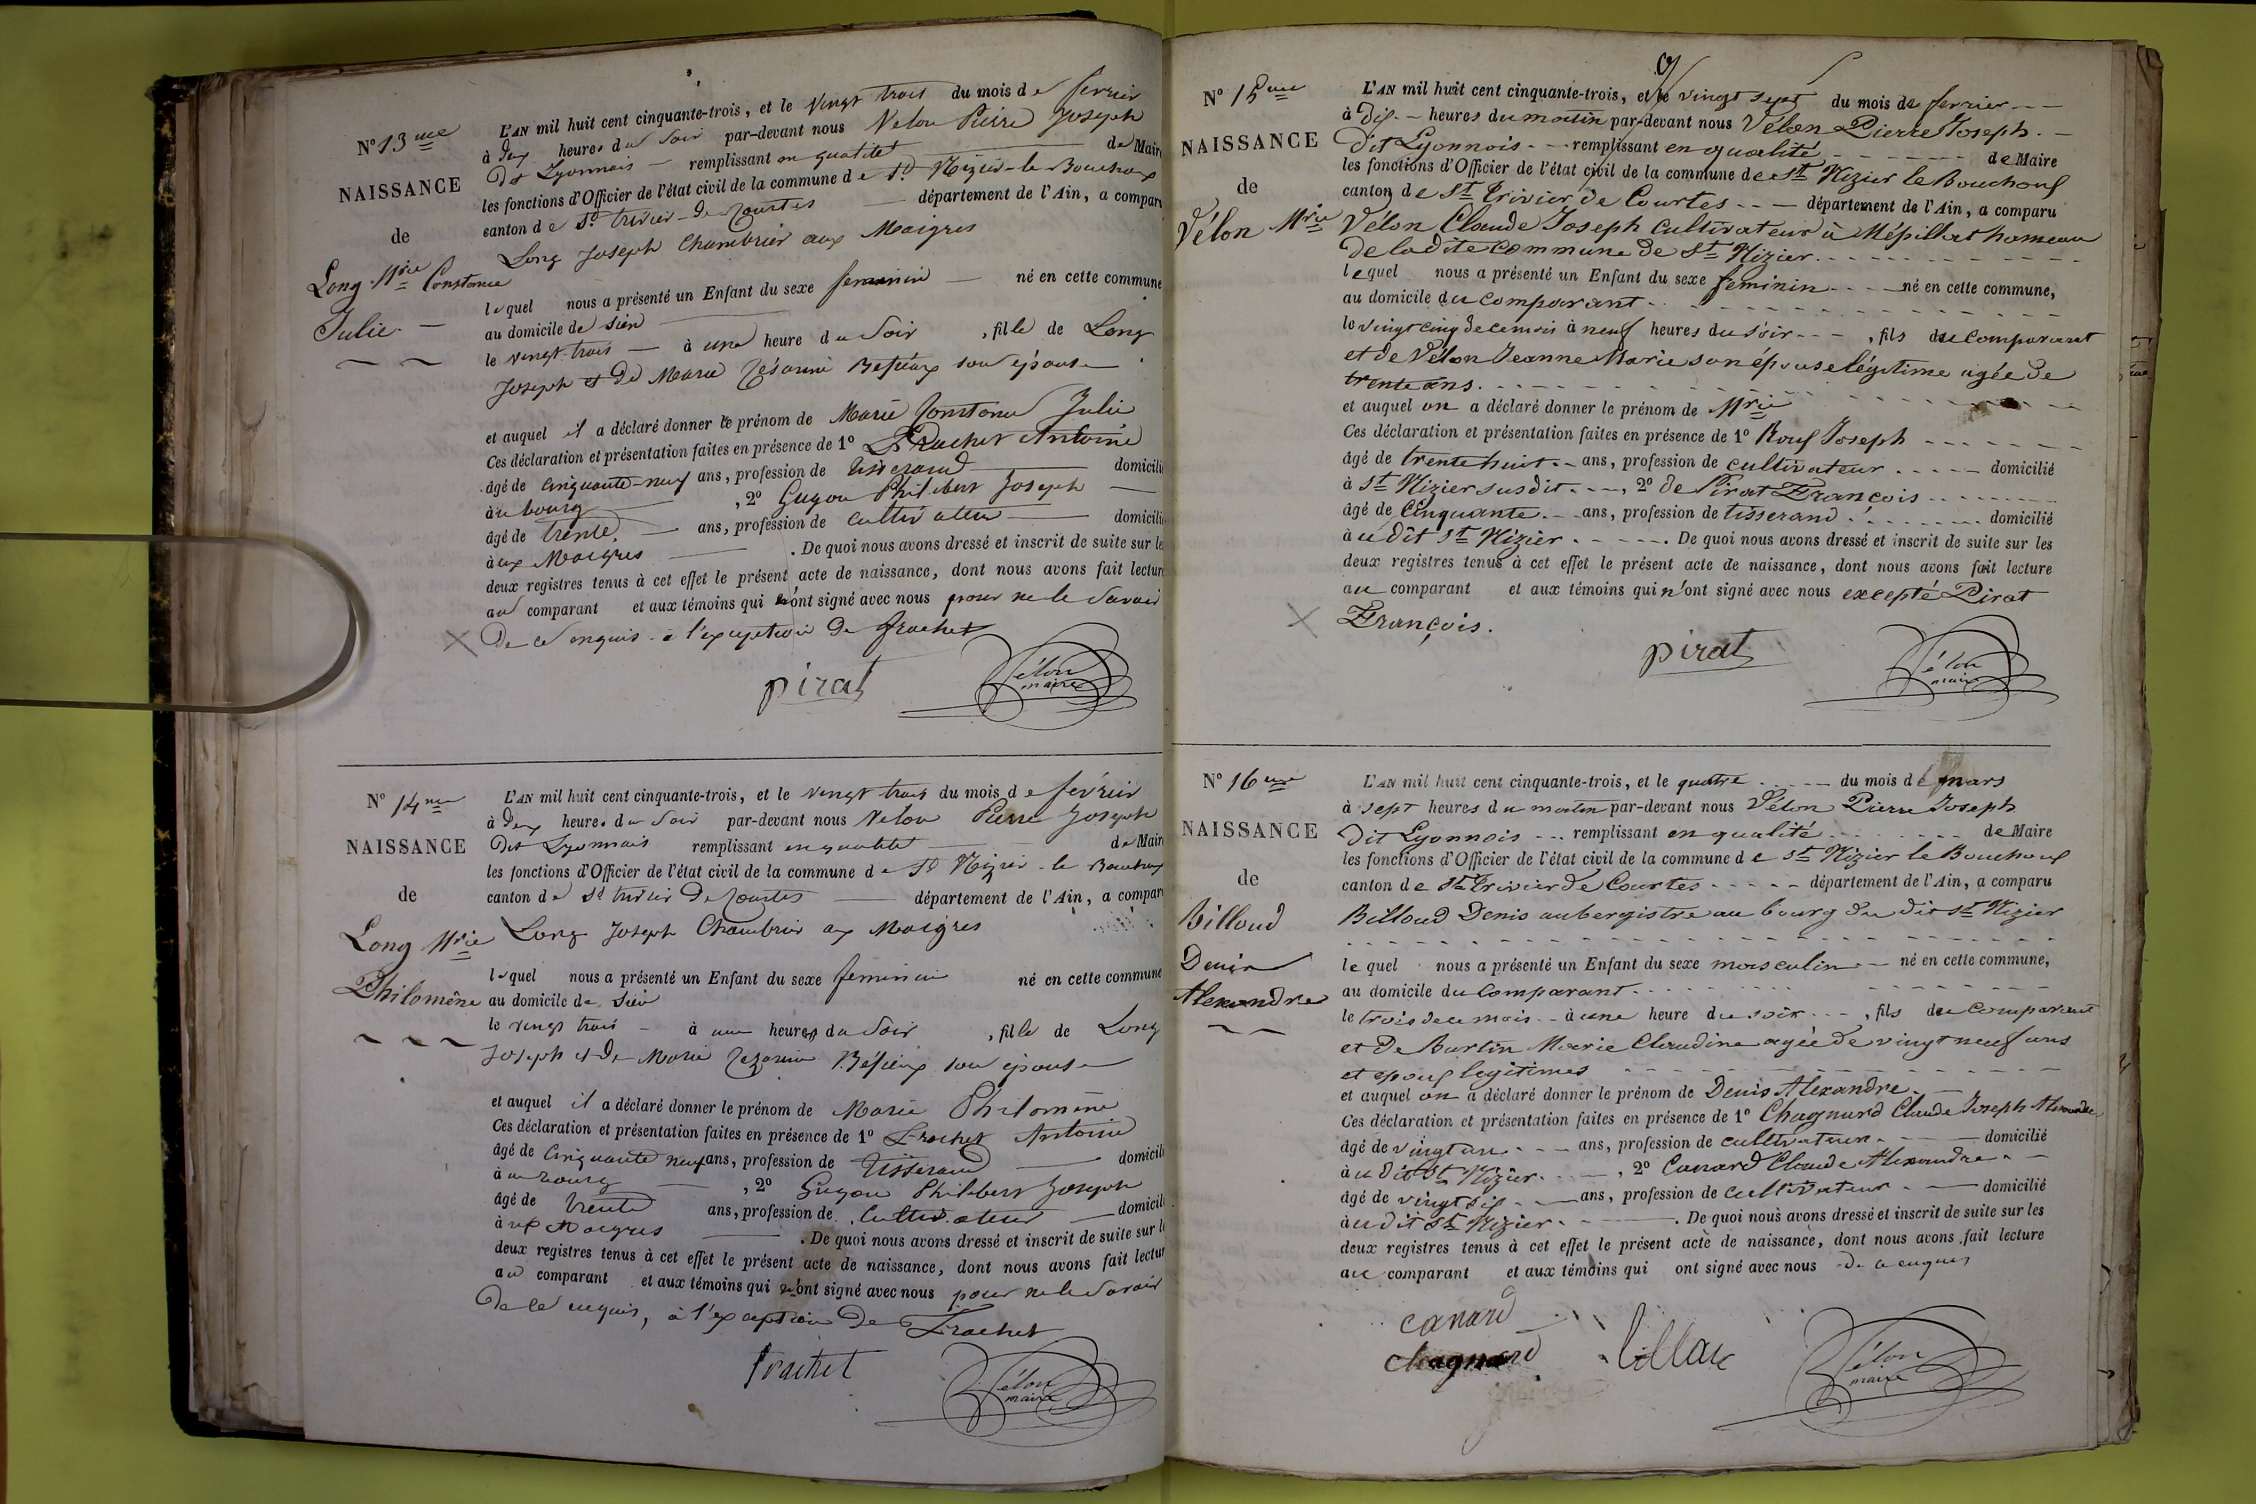 N° 13me
NAISSANCE
de
Long Mrie Constance
Julie
L'AN mil huit cent cinquante-trois, et le vingt trois du mois de fevrier
à deux heures du soir par-devant nous Velon Pierre Joseph
dit Lyonnais remplissant en qualité de Maire
les fonctions d'Officier de l'état civil de la commune de St Nizier-le-Bouchoux
canton de St trivier-de-Courtes département de l'Ain, a comparu
Long Joseph Chambrier aux Maigres
lequel nous a présenté un Enfant du sexe feminin né en cette commune
au domicile de sien
le vingt trois à une heure du soir , fille de Long
Joseph et de Marie son épouse
et auquel il a déclaré donner le prénom de Marie Constance Julie
Ces déclaration et présentation faites en présence de 1° Trachet Antoine
âgé de cinquante-neuf ans, profession de tisserand domicilié
à u bourg , 2° Guyon Philibert Joseph
âgé de trente ans, profession de cultivateur domicilié
à ux Maigres . De quoi nous avons dressé et inscrit de suite sur les
deux registres tenus à cet effet le présent acte de naissance, dont nous avons fait lecture
au comparant et aux témoins qui n'ont signé avec nous pour ne le savoir
de ce enquis à l'exception de Trachet
pirat Vélon
maire
N° 14me
NAISSANCE
de
Long Mrie
Philomène
L'AN mil huit cent cinquante-trois, et le vingt trois du mois de février
à deux heures du soir par-devant nous Velon Pierre Joseph
dit Lyonnais remplissant en qualité de Maire
les fonctions d'Officier de l'état civil de la commune de St Nizier-le-Bouchoux
canton de St trivier de Courtes département de l'Ain, a comparu
Long Joseph Chambrier aux Maigres
lequel nous a présenté un Enfant du sexe feminin né en cette commune
au domicile de sien
le vingt trois à une heures du soir , fille de Long
Joseph et de Marie son épouse
et auquel il a déclaré donner le prénom de Marie Philomène
Ces déclaration et présentation faites en présence de 1° Trachet Antoine
âgé de cinquante neuf ans, profession de tisserand domicilié
à u bourg , 2° Guyon Philibert Joseph
âgé de trente ans, profession de cultivateur domicilié
à ux Maigres . De quoi nous avons dressé et inscrit de suite sur les
deux registres tenus à cet effet le présent acte de naissance, dont nous avons fait lecture
au comparant et aux témoins qui n'ont signé avec nous pour ne le savoir
de ce enquis, à l'exception de Trachet
trachet Vélon
maire
9
N° 15me
NAISSANCE
de
Vélon Mrie
L'AN mil huit cent cinquante-trois, et le vingt sept du mois de fevrier
à dix heures du matin par-devant nous Vélon Pierre Joseph
dit Lyonnois remplissant en qualité de Maire
les fonctions d'Officier de l'état civil de la commune de St Nizier le Bouchoux
canton de St Trivier de Courtes département de l'Ain, a comparu
Vélon Claude Joseph cultivateur à Mépillat hameau
de ladite commune de St Nizier
lequel nous a présenté un Enfant du sexe feminin né en cette commune,
au domicile du comparant
le vingt cinq de ce mois à neuf heures du soir , fils du comparant
et de Vélon Jeanne Marie son épouse légitime agée de
trente ans
et auquel on a déclaré donner le prénom de Mrie
Ces déclaration et présentation faites en présence de 1° Roux Joseph
âgé de trente huit ans, profession de cultivateur domicilié
à St Nizier susdit , 2° de Pirat François
âgé de cinquante ans, profession de tisserand domicilié
à u dit St Nizier . De quoi nous avons dressé et inscrit de suite sur les
deux registres tenus à cet effet le présent acte de naissance, dont nous avons fait lecture
au comparant et aux témoins qui n'ont signé avec nous excepté Pirat
François.
pirat Vélon
maire
N° 16me
NAISSANCE
de
Billoud
Denis
Alexandre
L'AN mil huit cent cinquante-trois, et le quatre du mois de mars
à sept heures du matin par-devant nous Vélon Pierre Joseph
dit Lyonnois remplissant en qualité de Maire
les fonctions d'Officier de l'état civil de la commune de St Nizier le Bouchoux
canton de St Trivier de Courtes département de l'Ain, a comparu
Billoud Denis aubergistre au bourg du dit St Nizier
lequel nous a présenté un Enfant du sexe masculin né en cette commune,
au domicile du comparant
le trois de ce mois à une heure du soir , fils du comparant
et de Burtin Marie Claudine agée de vingt neuf ans
et epoux legitimes
et auquel on a déclaré donner le prénom de Denis Alexandre
Ces déclaration et présentation faites en présence de 1° Chagnard Claude Joseph Alexandre
âgé de vingt un ans, profession de cultivateur domicilié
à u dit St Nizier , 2° Canard Claude Alexandre
âgé de vingt six ans, profession de cultivateur domicilié
à u dit St Nizier . De quoi nous avons dressé et inscrit de suite sur les
deux registres tenus à cet effet le présent acte de naissance, dont nous avons fait lecture
au comparant et aux témoins qui ont signé avec nous de ce enquis
canard
chagnard Vélon
maire